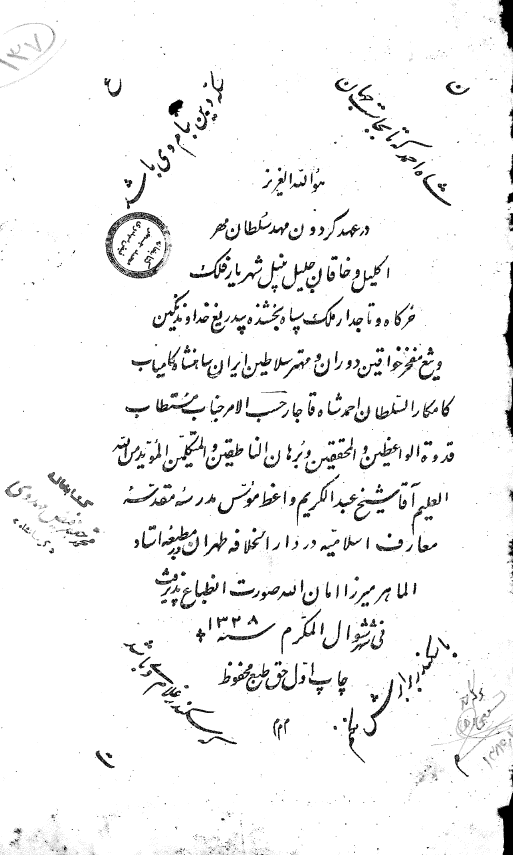 ۱۳۷
ن
ع
شاه احمد که تا بجا است جهان
سکه دین بنام وی باشد
هو الله العزیز
در عهد گردون مهد سلطان مهر
اکلیل و خاقان جلیل نبیل شهریار فلک
خرگاه و تاجدار ملک سپاه بخشنده بیدریغ خداوند نگین
و تیغ مفخر خواقین دوران و مهتر سلاطین ایران شاهنشاه کامیاب
کامکار السلطان احمد شاه قاجار حسب الامر جناب مستطاب
قدوة الواعظین والمحققین و برهان الناطقین والمتکلمین المؤید من الله
العلیم آقا شیخ عبدالکریم واعظ مؤسس مدرسه مقدسه
معارف اسلامیه در دار الخلافه طهران در مطبعه استاد
الماهر میرزا امان الله صورت انطباع پذیرفت
فی شهر شوال المکرم سنه ۱۳۲۸
چاپ اول حق طبع محفوظ
م م
با سکندر برابرش
گر سکندر غلام وی باشد
ت
کتابخانه